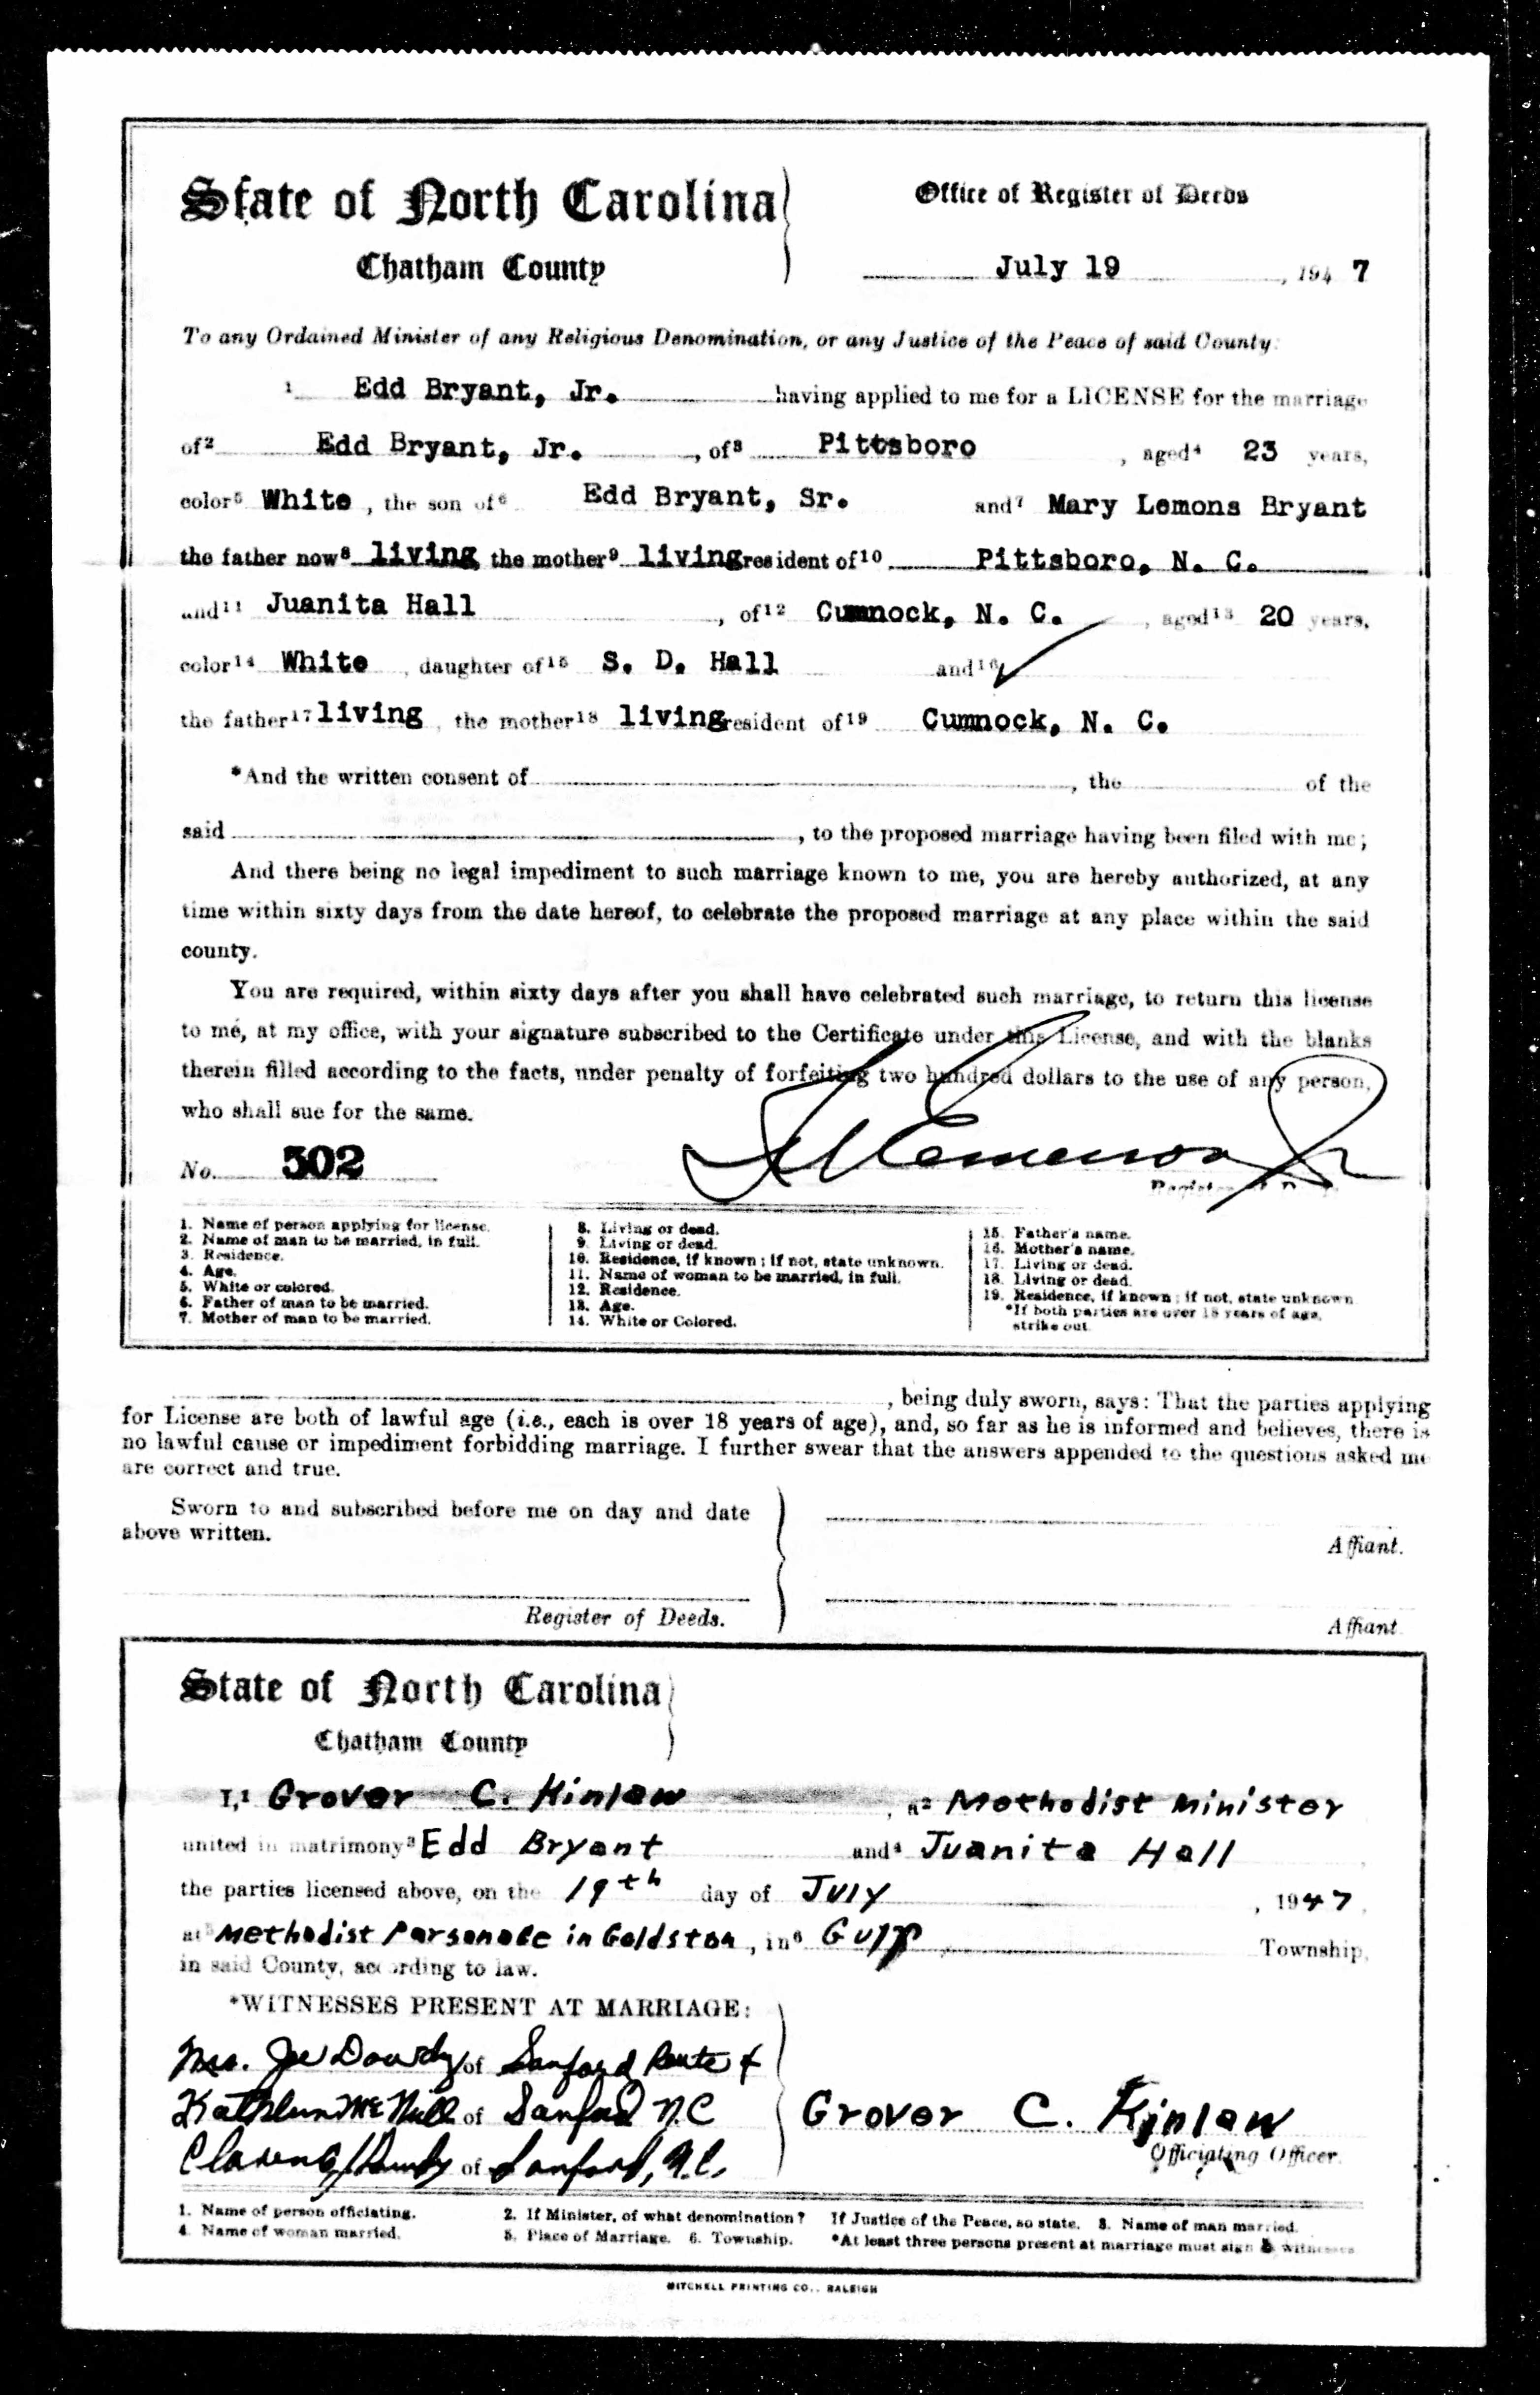 State of North Carolina
Chatham County
Office of Register of Deeds
July 19, 1947
To any Ordained Minister of any Religious Denomination, or any Justice of the Peace of said County:
1 Edd Bryant, Jr. having applied to me for a LICENSE for the marriage
of2 Edd Bryant, Jr., of3 Pittsboro, aged4 23 years,
color5 White, the son of6 Edd Bryant, Sr. and7 Mary Lemons Bryant
the father now8 living, the mother9 living resident of10 Pittsboro, N. C.
and11 Juanita Hall, of12 Cumnock, N. C., aged13 20 years,
color14 White, daughter of15 S. D. Hall and16 ✓
the father17 living, the mother18 living resident of19 Cumnock, N. C.
*And the written consent of, the of the
said, to the proposed marriage having been filed with me;
And there being no legal impediment to such marriage known to me, you are hereby authorized, at any
time within sixty days from the date hereof, to celebrate the proposed marriage at any place within the said
county.
You are required, within sixty days after you shall have celebrated such marriage, to return this license
to me, at my office, with your signature subscribed to the Certificate under this License, and with the blanks
therein filled according to the facts, under penalty of forfeiting two hundred dollars to the use of any person,
who shall sue for the same.
No. 502
Emerson Jr
1. Name of person applying for license.
2. Name of man to be married, in full.
3. Residence.
4. Age.
5. White or colored.
6. Father of man to be married.
7. Mother of man to be married.
8. Living or dead.
9. Living or dead.
10. Residence, if known; if not, state unknown.
11. Name of woman to be married, in full.
12. Residence.
13. Age.
14. White or Colored.
15. Father's name.
16. Mother's name.
17. Living or dead.
18. Living or dead.
19. Residence, if known; if not, state unknown
*If both parties are over 18 years of age,
strike out.
, being duly sworn, says: That the parties applying
for License are both of lawful age (i.e., each is over 18 years of age), and, so far as he is informed and believes, there is
no lawful cause or impediment forbidding marriage. I further swear that the answers appended to the questions asked me
are correct and true.
Sworn to and subscribed before me on day and date
above written.
Affiant.
Register of Deeds.
Affiant.
State of North Carolina
Chatham County
I,1 Grover C. Kinlaw, a2 Methodist Minister
united in matrimony3 Edd Bryant and4 Juanita Hall
the parties licensed above, on the 19th day of July, 1947,
at5 Methodist Parsonage in Goldston, in6 Gulf Township,
in said County, according to law.
*WITNESSES PRESENT AT MARRIAGE:
Mrs. Joe Dowdy of Sanford Route 4
Kathleen McNeill of Sanford N.C
of Sanford, N.C.
Grover C. Kinlaw
Officiating Officer.
1. Name of person officiating. 2. If Minister, of what denomination? If Justice of the Peace, so state. 3. Name of man married.
4. Name of woman married. 5. Place of Marriage. 6. Township. *At least three persons present at marriage must sign as witnesses
MITCHELL PRINTING CO., RALEIGH